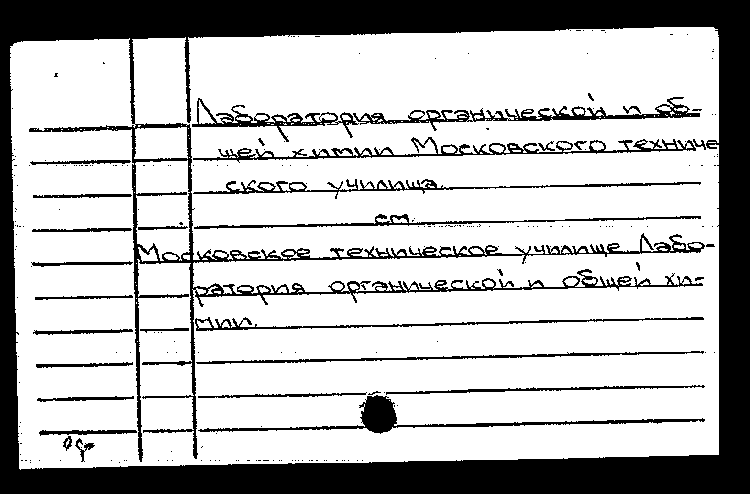 Лаборатория органической и об-
щей химии Московского техниче
ского училища.
см.
Московское техническое училище Лабо-
ратория органической и общей хи-
мии.